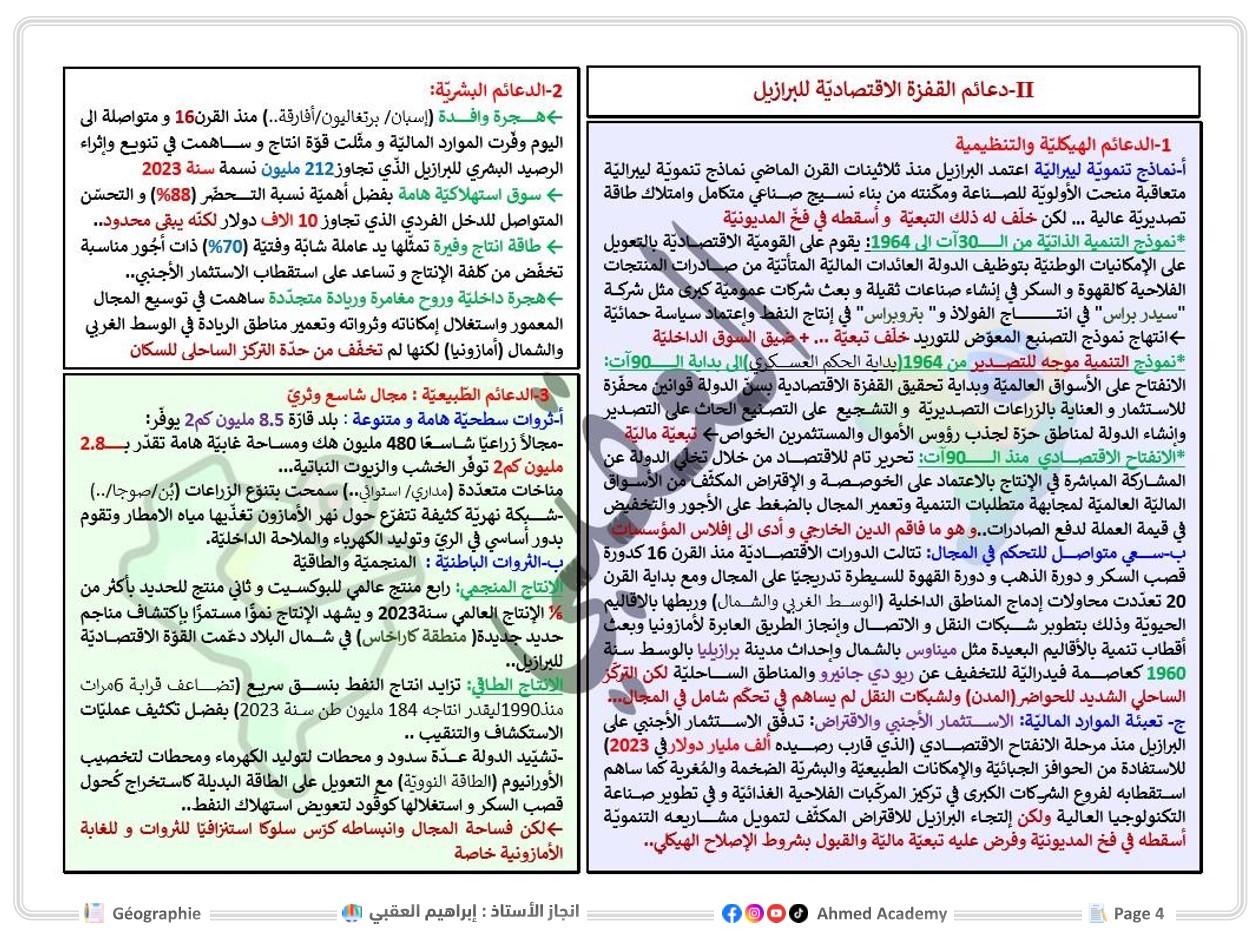 II-دعائم القفزة الاقتصاديّة للبرازيل
1-الدعائم الهيكليّة والتنظيمية
أ-نماذج تنمويّة ليبراليّة اعتمد البرازيل منذ ثلاثينات القرن الماضي نماذج تنمويّة ليبراليّة
متعاقبة منحت الأولويّة للصناعة ومكّنته من بناء نسيج صناعي متكامل وامتلاك طاقة
تصديريّة عالية ... لكن خلّف له ذلك التبعيّة و أسقطه في فخّ المديونيّة
*نموذج التنمية الذاتيّة من الـ30آت الى 1964: يقوم على القوميّة الاقتصاديّة بالتعويل
على الإمكانيات الوطنيّة بتوظيف الدولة العائدات الماليّة المتأتيّة من صادرات المنتجات
الفلاحية كالقهوة و السكر في إنشاء صناعات ثقيلة و بعث شركات عموميّة كبرى مثل شركة
"سيدر براس" في انتاج الفولاذ و" بتروبراس" في إنتاج النفط وإعتماد سياسة حمائيّة
←انتهاج نموذج التصنيع المعوّض للتوريد خلّف تبعيّة ... + ضيق السوق الداخليّة
*نموذج التنمية موجه للتصدير من 1964(بداية الحكم العسكري)الى بداية الـ90آت:
الانفتاح على الأسواق العالميّة وبداية تحقيق القفزة الاقتصادية بسن الدولة قوانين محفّزة
للاستثمار و العناية بالزراعات التصديريّة و التشجيع على التصنيع الحاث على التصدير
وإنشاء الدولة لمناطق حرّة لجذب رؤوس الأموال والمستثمرين الخواص← تبعيّة ماليّة
*الانفتاح الاقتصادي منذ الـ90آت: تحرير تام للاقتصاد من خلال تخلّي الدولة عن
المشاركة المباشرة في الإنتاج بالاعتماد على الخوصصة و الإقتراض المكثّف من الأسواق
الماليّة العالميّة لمجابهة متطلبات التنمية وتعمير المجال بالضغط على الأجور والتخفيض
في قيمة العملة لدفع الصادرات..و هو ما فاقم الدين الخارجي و أدى الى إفلاس المؤسسات
ب-سعي متواصل للتحكم في المجال: تتالت الدورات الاقتصاديّة منذ القرن 16 كدورة
قصب السكر و دورة الذهب و دورة القهوة للسيطرة تدريجيّا على المجال ومع بداية القرن
20 تعدّدت محاولات إدماج المناطق الداخلية (الوسط الغربي والشمال) وربطها بالاقاليم
الحيويّة وذلك بتطوير شبكات النقل و الاتصال وإنجاز الطريق العابرة لأمازونيا وبعث
أقطاب تنمية بالأقاليم البعيدة مثل ميناوس بالشمال وإحداث مدينة برازيليا بالوسط سنة
1960 كعاصمة فيدراليّة للتخفيف عن ريو دي جانيرو والمناطق الساحليّة لكن التركّز
الساحلي الشديد للحواضر(المدن) ولشبكات النقل لم يساهم في تحكّم شامل في المجال...
ج- تعبئة الموارد الماليّة: الاستثمار الأجنبي والاقتراض: تدفّق الاستثمار الأجنبي على
البرازيل منذ مرحلة الانفتاح الاقتصادي (الذي قارب رصيده ألف مليار دولارفي 2023)
للاستفادة من الحوافز الجبائيّة والإمكانات الطبيعيّة والبشريّة الضخمة والمُغرية كما ساهم
استقطابه لفروع الشركات الكبرى في تركيز المركّبات الفلاحية الغذائيّة و في تطوير صناعة
التكنولوجيا العالية ولكن إلتجاء البرازيل للاقتراض المكثّف لتمويل مشاريعه التنمويّة
أسقطه في فخ المديونيّة وفرض عليه تبعيّة ماليّة والقبول بشروط الإصلاح الهيكلي..
2-الدعائم البشريّة:
←هجرة وافدة (إسبان/ برتغاليون/أفارقة..) منذ القرن16 و متواصلة الى
اليوم وفّرت الموارد الماليّة و مثّلت قوّة انتاج و ساهمت في تنويع وإثراء
الرصيد البشري للبرازيل الذّي تجاوز212 مليون نسمة سنة 2023
← سوق استهلاكيّة هامة بفضل أهميّة نسبة التحضّر (88%) و التحسّن
المتواصل للدخل الفردي الذي تجاوز 10 الاف دولار لكنّه يبقى محدود..
← طاقة انتاج وفيرة تمثّلها يد عاملة شابّة وفتيّة (70%) ذات أجُور مناسبة
تخفّض من كلفة الإنتاج و تساعد على استقطاب الاستثمار الأجنبي..
←هجرة داخليّة وروح مغامرة وريادة متجدّدة ساهمت في توسيع المجال
المعمور واستغلال إمكاناته وثرواته وتعمير مناطق الريادة في الوسط الغربي
والشمال (أمازونيا) لكنها لم تخفّف من حدّة التركز الساحلي للسكان
3-الدعائم الطّبيعيّة : مجال شاسع وثريّ
أ-ثروات سطحيّة هامة و متنوعة : بلد قارّة 8.5 مليون كم2 يوفّر:
-مجالاً زراعيّا شاسعًا 480 مليون هك ومساحة غابيّة هامة تقدّر بـ2.8
مليون كم2 توفّر الخشب والزيوت النباتية...
مناخات متعدّدة (مداري/ استوائي..) سمحت بتنوّع الزراعات (بُن/صوجا/..)
-شبكة نهريّة كثيفة تتفرّع حول نهر الأمازون تغذّيها مياه الامطار وتقوم
بدور أساسي في الريّ وتوليد الكهرباء والملاحة الداخليّة.
ب-الثروات الباطنيّة : المنجميّة والطاقيّة
الإنتاج المنجمي: رابع منتج عالمي للبوكسيت و ثاني منتج للحديد بأكثر من
⅙ الإنتاج العالمي سنة2023 و يشهد الإنتاج نموًا مستمرًا بإكتشاف مناجم
حديد جديدة( منطقة كاراخاس) في شمال البلاد دعّمت القوّة الاقتصاديّة
للبرازيل..
الانتاج الطاقي: تزايد انتاج النفط بنسق سريع (تضاعف قرابة 6مرات
منذ1990ليقدر انتاجه 184 مليون طن سنة 2023) بفضل تكثيف عمليّات
الاستكشاف والتنقيب ..
-تشيّيد الدولة عدّة سدود و محطات لتوليد الكهرماء ومحطات لتخصيب
الأورانيوم (الطاقة النوويّة) مع التعويل على الطاقة البديلة كاستخراج كُحول
قصب السكر و استغلالها كوقود لتعويض استهلاك النفط..
←لكن فساحة المجال وانبساطه كرّس سلوكا استنزافيّا للثروات و للغابة
الأمازونية خاصة
العقبي
Géographie
انجاز الأستاذ : إبراهيم العقبي
Ahmed Academy
Page 4